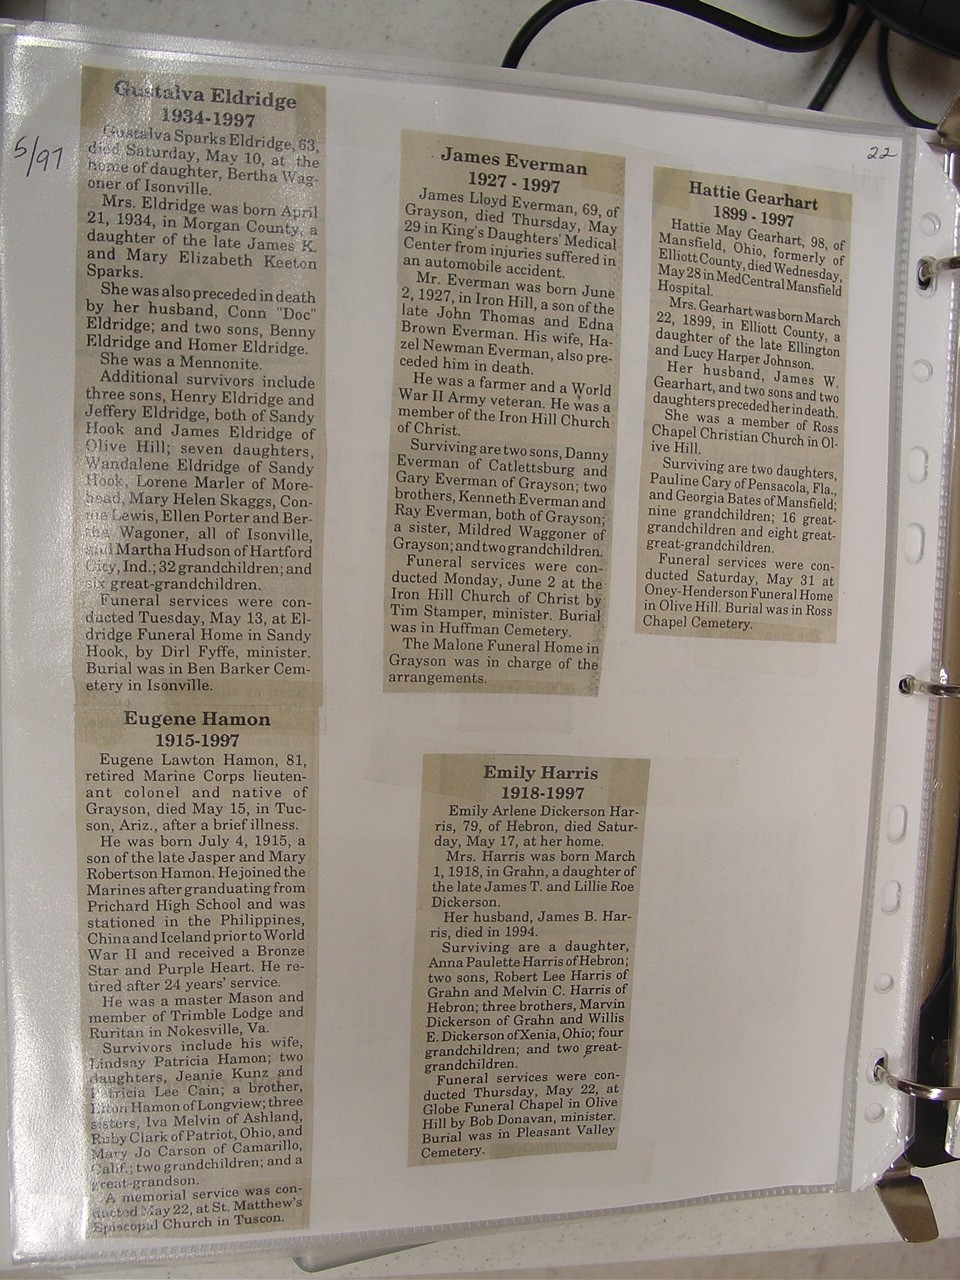 5/97
22
Gustalva Eldridge
1934-1997
Gustalva Sparks Eldridge, 63,
died Saturday, May 10, at the
home of daughter, Bertha Wag-
oner of Isonville.
Mrs. Eldridge was born April
21, 1934, in Morgan County, a
daughter of the late James K.
and Mary Elizabeth Keeton
Sparks.
She was also preceded in death
by her husband, Conn "Doc"
Eldridge; and two sons, Benny
Eldridge and Homer Eldridge.
She was a Mennonite.
Additional survivors include
three sons, Henry Eldridge and
Jeffery Eldridge, both of Sandy
Hook and James Eldridge of
Olive Hill; seven daughters,
Wandalene Eldridge of Sandy
Hook, Lorene Marler of More-
head, Mary Helen Skaggs, Con-
nie Lewis, Ellen Porter and Ber-
tha Wagoner, all of Isonville,
and Martha Hudson of Hartford
City, Ind.; 32 grandchildren; and
six great-grandchildren.
Funeral services were con-
ducted Tuesday, May 13, at El-
dridge Funeral Home in Sandy
Hook, by Dirl Fyffe, minister.
Burial was in Ben Barker Cem-
etery in Isonville.
Eugene Hamon
1915-1997
Eugene Lawton Hamon, 81,
retired Marine Corps lieuten-
ant colonel and native of
Grayson, died May 15, in Tuc-
son, Ariz., after a brief illness.
He was born July 4, 1915, a
son of the late Jasper and Mary
Robertson Hamon. He joined the
Marines after granduating from
Prichard High School and was
stationed in the Philippines,
China and Iceland prior to World
War II and received a Bronze
Star and Purple Heart. He re-
tired after 24 years' service.
He was a master Mason and
member of Trimble Lodge and
Ruritan in Nokesville, Va.
Survivors include his wife,
Lindsay Patricia Hamon; two
daughters, Jeanie Kunz and
Patricia Lee Cain; a brother,
Elton Hamon of Longview; three
sisters, Iva Melvin of Ashland,
Ruby Clark of Patriot, Ohio, and
Mary Jo Carson of Camarillo,
Calif.; two grandchildren; and a
great-grandson.
A memorial service was con-
ducted May 22, at St. Matthew's
Episcopal Church in Tuscon.
James Everman
1927 - 1997
James Lloyd Everman, 69, of
Grayson, died Thursday, May
29 in King's Daughters' Medical
Center from injuries suffered in
an automobile accident.
Mr. Everman was born June
2, 1927, in Iron Hill, a son of the
late John Thomas and Edna
Brown Everman. His wife, Ha-
zel Newman Everman, also pre-
ceded him in death.
He was a farmer and a World
War II Army veteran. He was a
member of the Iron Hill Church
of Christ.
Surviving are two sons, Danny
Everman of Catlettsburg and
Gary Everman of Grayson; two
brothers, Kenneth Everman and
Ray Everman, both of Grayson;
a sister, Mildred Waggoner of
Grayson; and two grandchildren.
Funeral services were con-
ducted Monday, June 2 at the
Iron Hill Church of Christ by
Tim Stamper, minister. Burial
was in Huffman Cemetery.
The Malone Funeral Home in
Grayson was in charge of the
arrangements.
Emily Harris
1918-1997
Emily Arlene Dickerson Har-
ris, 79, of Hebron, died Satur-
day, May 17, at her home.
Mrs. Harris was born March
1, 1918, in Grahn, a daughter of
the late James T. and Lillie Roe
Dickerson.
Her husband, James B. Har-
ris, died in 1994.
Surviving are a daughter,
Anna Paulette Harris of Hebron;
two sons, Robert Lee Harris of
Grahn and Melvin C. Harris of
Hebron; three brothers, Marvin
Dickerson of Grahn and Willis
E. Dickerson of Xenia, Ohio; four
grandchildren; and two great-
grandchildren.
Funeral services were con-
ducted Thursday, May 22, at
Globe Funeral Chapel in Olive
Hill by Bob Donavan, minister.
Burial was in Pleasant Valley
Cemetery.
Hattie Gearhart
1899 - 1997
Hattie May Gearhart, 98, of
Mansfield, Ohio, formerly of
Elliott County, died Wednesday,
May 28 in MedCentral Mansfield
Hospital.
Mrs. Gearhart was born March
22, 1899, in Elliott County, a
daughter of the late Ellington
and Lucy Harper Johnson.
Her husband, James W.
Gearhart, and two sons and two
daughters preceded her in death.
She was a member of Ross
Chapel Christian Church in Ol-
ive Hill.
Surviving are two daughters,
Pauline Cary of Pensacola, Fla.,
and Georgia Bates of Mansfield;
nine grandchildren; 16 great-
grandchildren and eight great-
great-grandchildren.
Funeral services were con-
ducted Saturday, May 31 at
Oney-Henderson Funeral Home
in Olive Hill. Burial was in Ross
Chapel Cemetery.